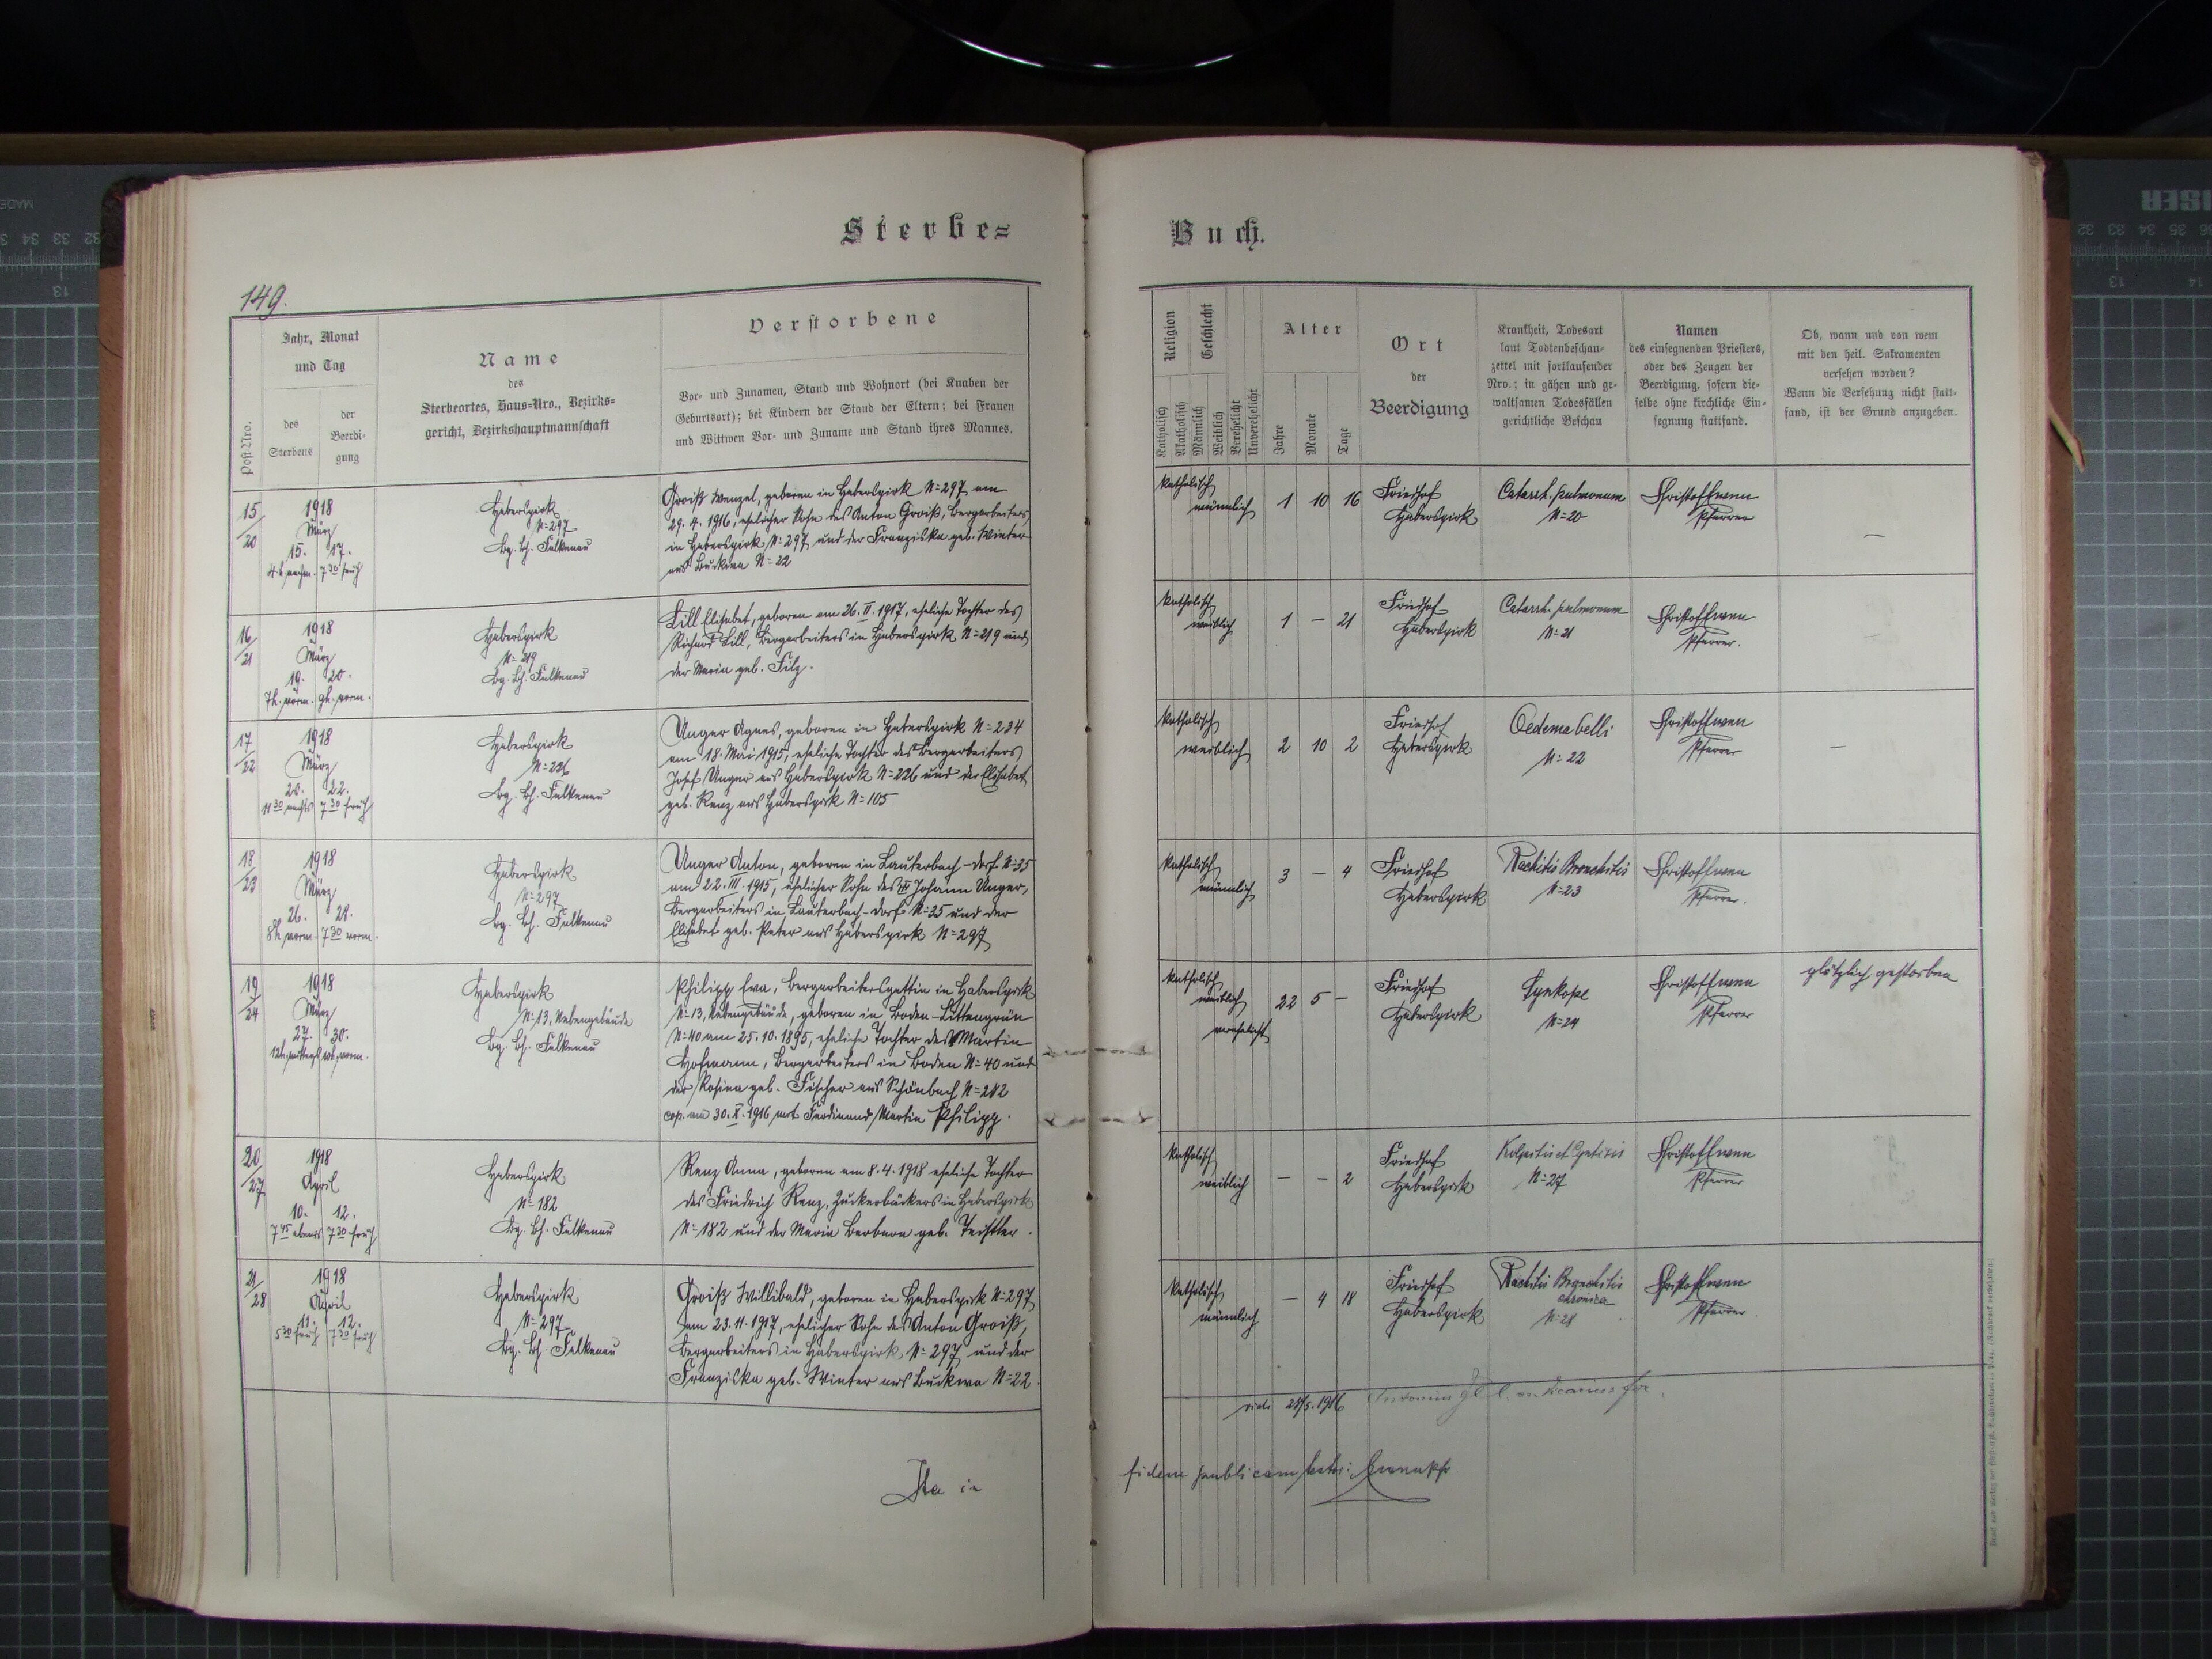 Sterbe=
Buch.
149.
Post-Nro.
Jahr, Monat
und Tag
des
Sterbens
der
Beerdi-
gung
Name
des
Sterbeortes, Haus-Nro., Bezirks-
gericht, Bezirkshauptmannschaft
Verstorbene
Vor- und Zunamen, Stand und Wohnort (bei Knaben der
Geburtsort); bei Kindern der Stand der Eltern; bei Frauen
und Wittwen Vor- und Zuname und Stand ihres Mannes.
Religion
Katholisch
Akatholisch
Geschlecht
Männlich
Weiblich
Verehelicht
Unverehelicht
Alter
Jahre
Monate
Tage
Ort
der
Beerdigung
Krankheit, Todesart
laut Todtenbeschau-
zettel mit fortlaufender
Nro.; in gähen und ge-
waltsamen Todesfällen
gerichtliche Beschau
Namen
des einsegnenden Priesters,
oder des Zeugen der
Beerdigung, sofern die-
selbe ohne kirchliche Ein-
segnung stattfand.
Ob, wann und von wem
mit den heil. Sakramenten
versehen worden?
Wenn die Versehung nicht statt-
fand, ist der Grund anzugeben.
15/20
1918
März
15. 17.
4 h. nachm. 7 30 früh
Haberspirk
N=297
Bg. Bh. Falkenau
Groiß Wenzel, geboren in Haberspirk N=297 am
29.4.1916, ehelicher Sohn des Anton Groiß, Bergarbeiters
in Haberspirk N=297 und der Franziska geb. Winter
aus Buckwa N=22
katholisch
männlich
1 10 16
Friedhof
Haberspirk
Catarrh. pulmonum
N=20
Pfarrer
—
16/21
1918
März
19. 20.
7h. vorm. 9h. vorm.
Haberspirk
N=219
Bg. Bh. Falkenau
Lill Elisabet, geboren am 26.II.1917, eheliche Tochter des
Richard Lill, Bergarbeiters in Haberspirk N=219 und
der Maria geb. Filz.
katholisch
weiblich
1 — 21
Friedhof
Haberspirk
Catarrh. pulmonum
N=21
Pfarrer.
17/22
1918
März
20. 22.
11 30 nachts 7 30 früh
Haberspirk
N=226
Bg. Bh. Falkenau
Unger Agnes, geboren in Haberspirk N=234
am 18. Mai 1915, eheliche Tochter des Bergarbeiters
Josef Unger aus Haberspirk N=226 und der Elisabet
geb. Renz aus Haberspirk N=105
katholisch
weiblich
2 10 2
Friedhof
Haberspirk
Oedema
N=22
Pfarrer
—
18/23
1918
März
26. 28.
8h. vorm. 7 30 vorm.
Haberspirk
N=297
Bg. Bh. Falkenau
Unger Anton, geboren in Lauterbach-Dorf N=35
am 22.III.1915, ehelicher Sohn des Johann Unger,
Bergarbeiters in Lauterbach-Dorf N=35 und der
Elisabet geb. Peter aus Haberspirk N=297
katholisch
männlich
3 — 4
Friedhof
Haberspirk
Rachitis Bronchitis
N=23
Pfarrer.
19/24
1918
März
27. 30.
12h. mittags 10h. vorm.
Haberspirk
N=13, Nebengebäude
Bg. Bh. Falkenau
Philipp Eva, Bergarbeitersgattin in Haberspirk
N=13, Nebengebäude, geboren in Boden-Littengrün
N=40 am 25.10.1895, eheliche Tochter des Martin
Hofmann, Bergarbeiters in Boden N=40 und
der Rosina geb. Fischer aus Schönbach N=212
cop. am 30.X.1916 mit Ferdinand Martin Philipp.
katholisch
weiblich
verehelicht
22 5 —
Friedhof
Haberspirk
Synkope
N=24
Pfarrer
plötzlich gestorben
20/27
1918
April
10. 12.
7 45 abends 7 30 früh
Haberspirk
N=182
Bg. Bh. Falkenau
Renz Anna, geboren am 8.4.1918 eheliche Tochter
des Friedrich Renz, Zuckerbäckers in Haberspirk
N=182 und der Maria Barbara geb.
katholisch
weiblich
— — 2
Friedhof
Haberspirk
N=27
Pfarrer
21/28
1918
April
11. 12.
5 30 früh 7 30 früh
Haberspirk
N=297
Bg. Bh. Falkenau
Groiß Willibald, geboren in Haberspirk N=297
am 23.11.1917, ehelicher Sohn des Anton Groiß,
Bergarbeiters in Haberspirk N=297 und der
Franziska geb. Winter aus Buckwa N=22.
katholisch
männlich
— 4 18
Friedhof
Haberspirk
Rachitis Bronchitis
chronica
N=28
Pfarrer
vidi 28/5.1916
Ita in
fidem publicam